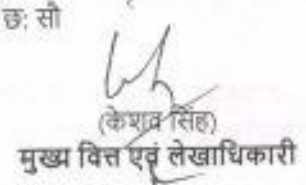 छ: सौ
(केशव सिंह)
मुख्य वित्त एवं लेखाधिकारी